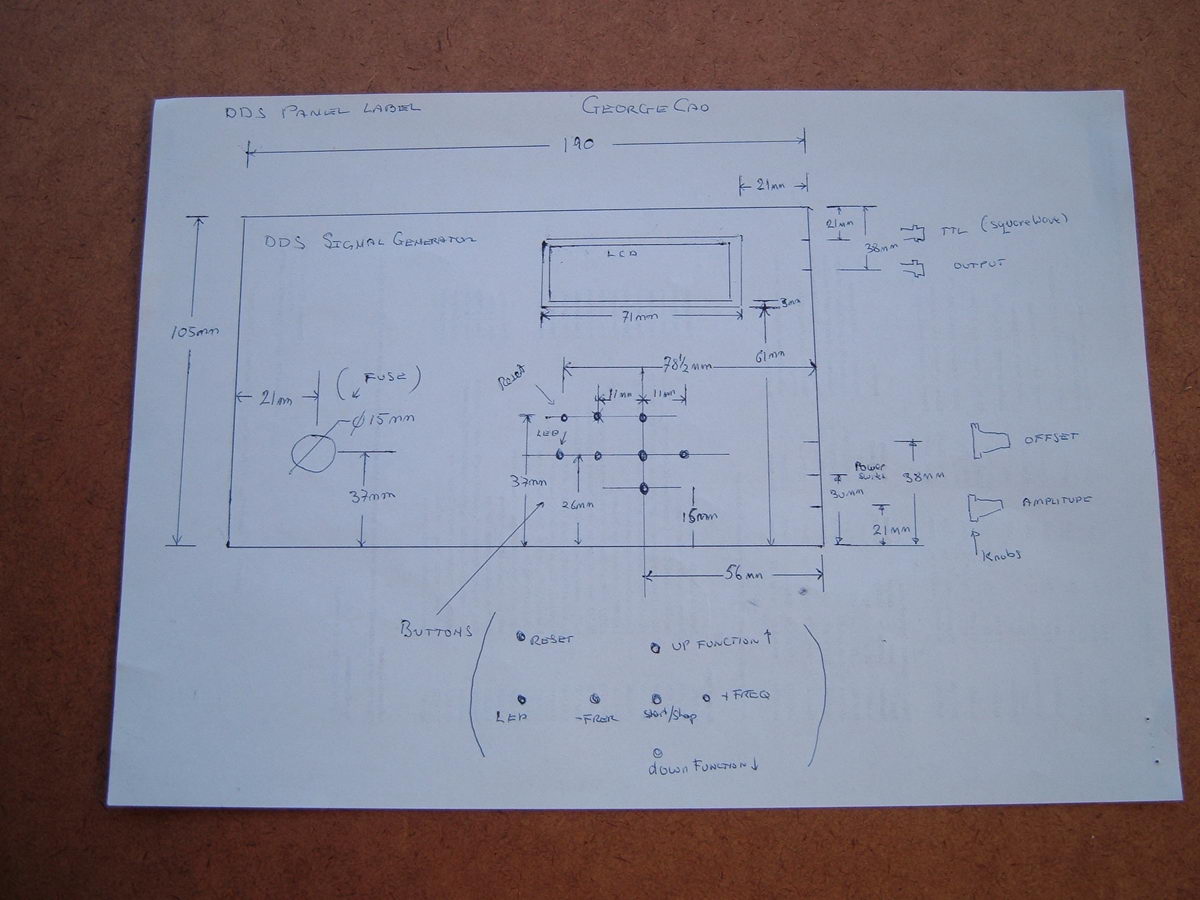 DDS PANEL LABEL
GEORGE CAO
190
21mm
DDS SIGNAL GENERATOR
LCD
21mm
38mm
TTL (squareWave)
OUTPUT
105mm
71mm
3mm
61mm
78½mm
(FUSE)
Reset
21mm
11mm
11mm
φ15mm
LED
OFFSET
37mm
37mm
26mm
15mm
Power
Switch
30mm
38mm
21mm
AMPLITUDE
Knobs
56mm
BUTTONS
RESET
UP FUNCTION ↑
LED
-FRER
start/stop
+FREQ
down FUNCTION ↓